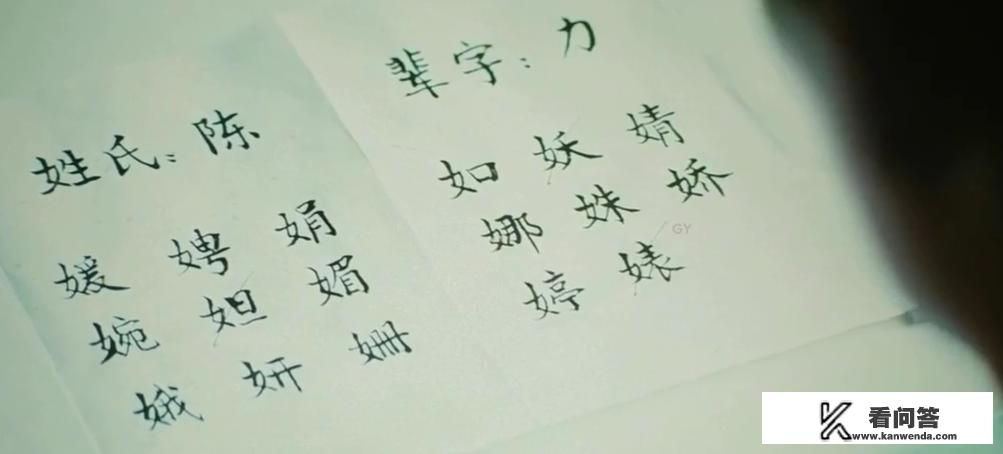 姓氏：陈
媛 娉 娟
婉 妲 媚
娥 妍 姗
辈字：力
如 妖 婧
娜 姝 娇
婷 婊
GY
看问答
www.kanwenda.com